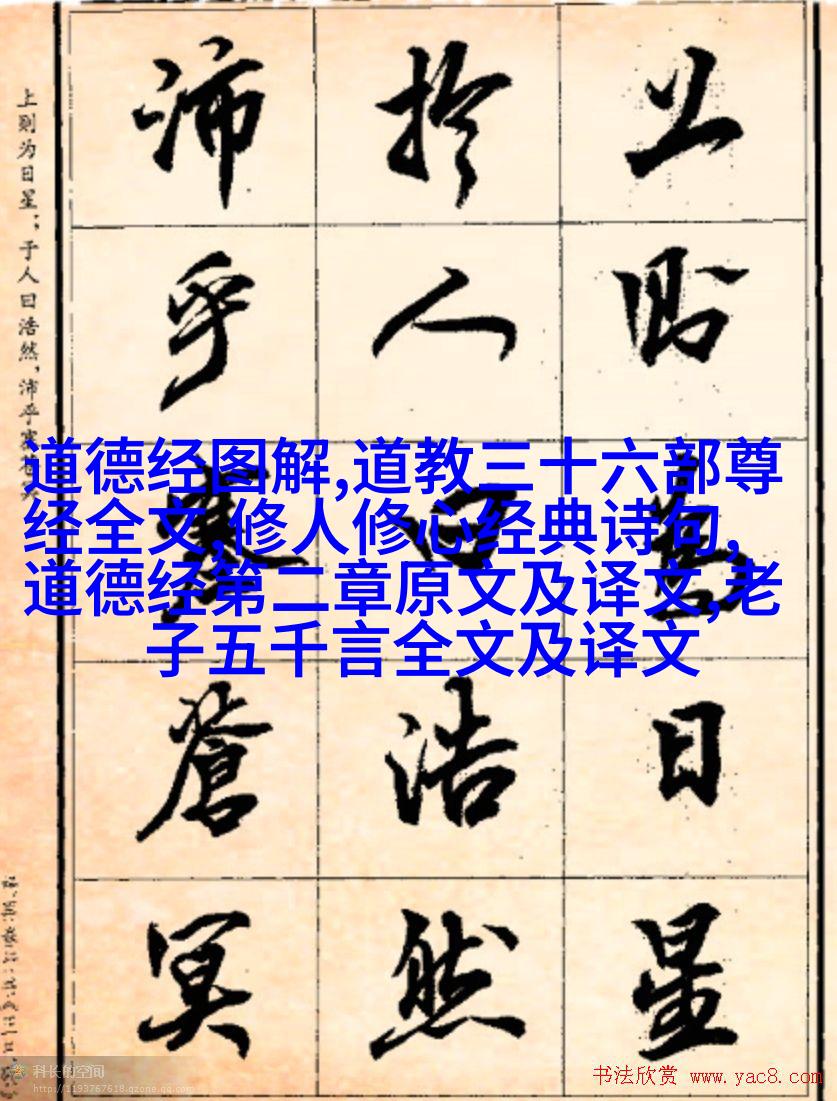 上則為日星
扵人曰浩然
沛乎塞蒼冥
上则为日星；于人曰浩然，沛乎塞
道德经图解,道教三十六部尊
经全文,修人修心经典诗句,
道德经第二章原文及译文,老
子五千言全文及译文
科长的空间
http://1193767618.qzone.qq.com
书法欣赏 www.yac8.com